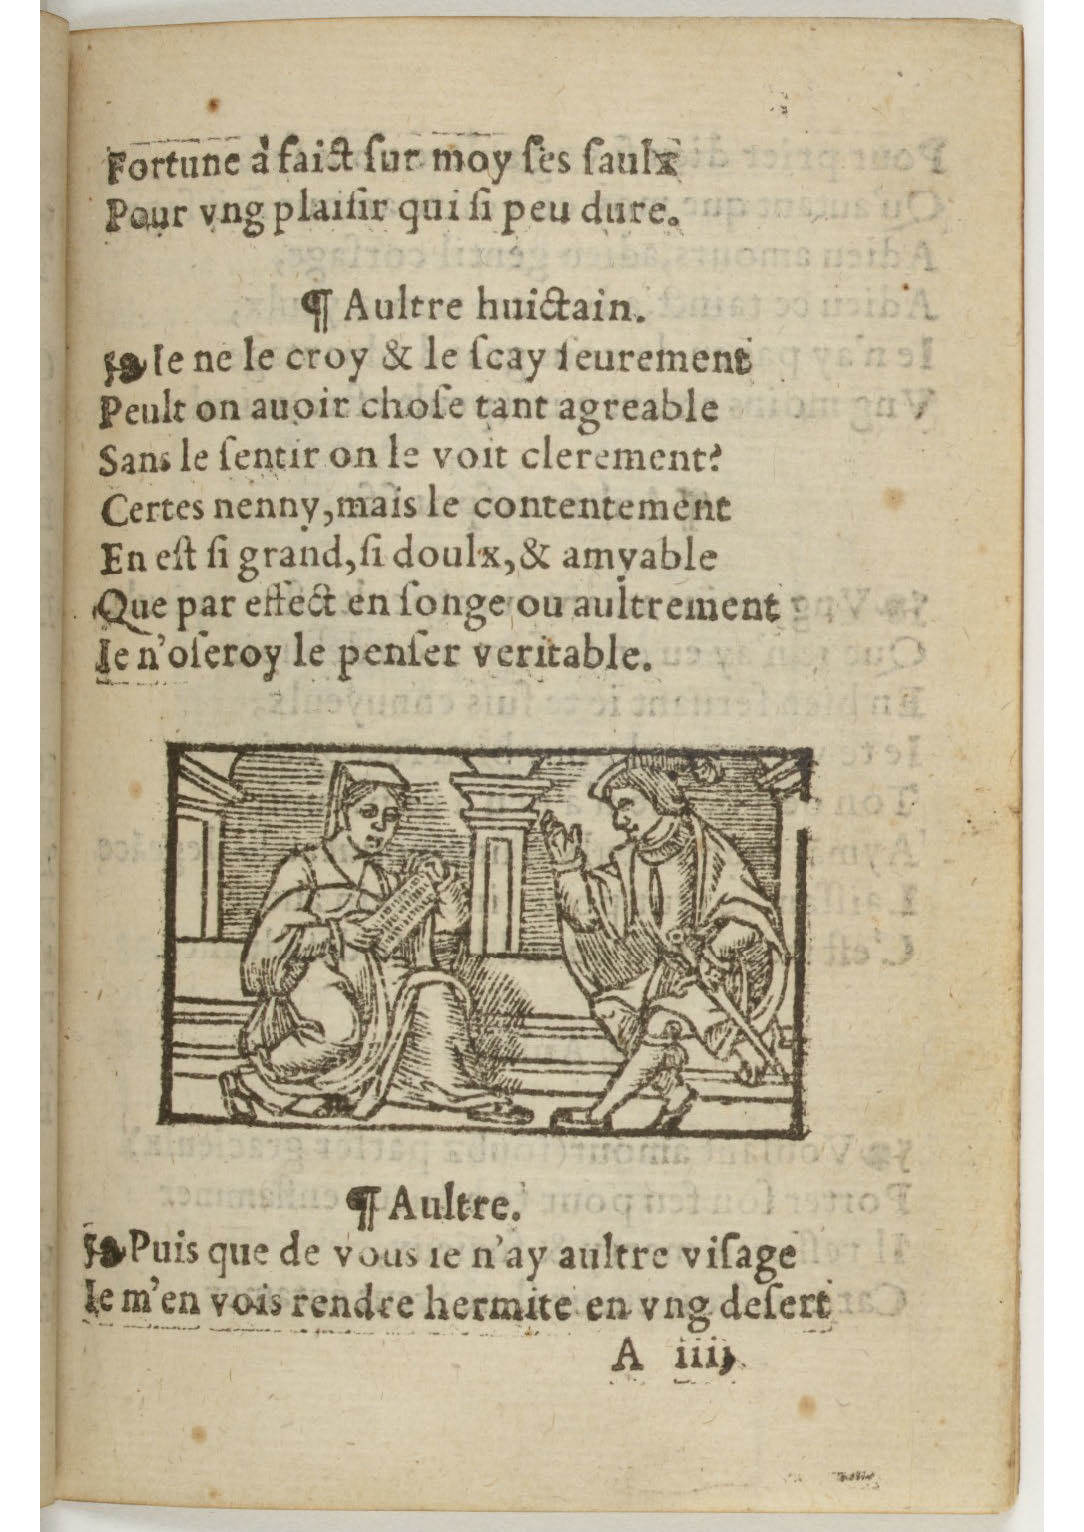 Fortune à faict ſur moy ſes ſaulx
Pour vng plaiſir qui ſi peu dure.
¶ Aultre huictain.
Ie ne le croy & le ſcay ſeurement
Peult on auoir choſe tant agreable
Sans le ſentir on le voit clerement?
Certes nenny, mais le contentement
En eſt ſi grand, ſi doulx, & amyable
Que par effect en ſonge ou aultrement
Ie n'oſeroy le penſer veritable.
¶ Aultre.
Puis que de vous ie n'ay aultre viſage
Ie m'en vois rendre hermite en vng deſert
A iiij